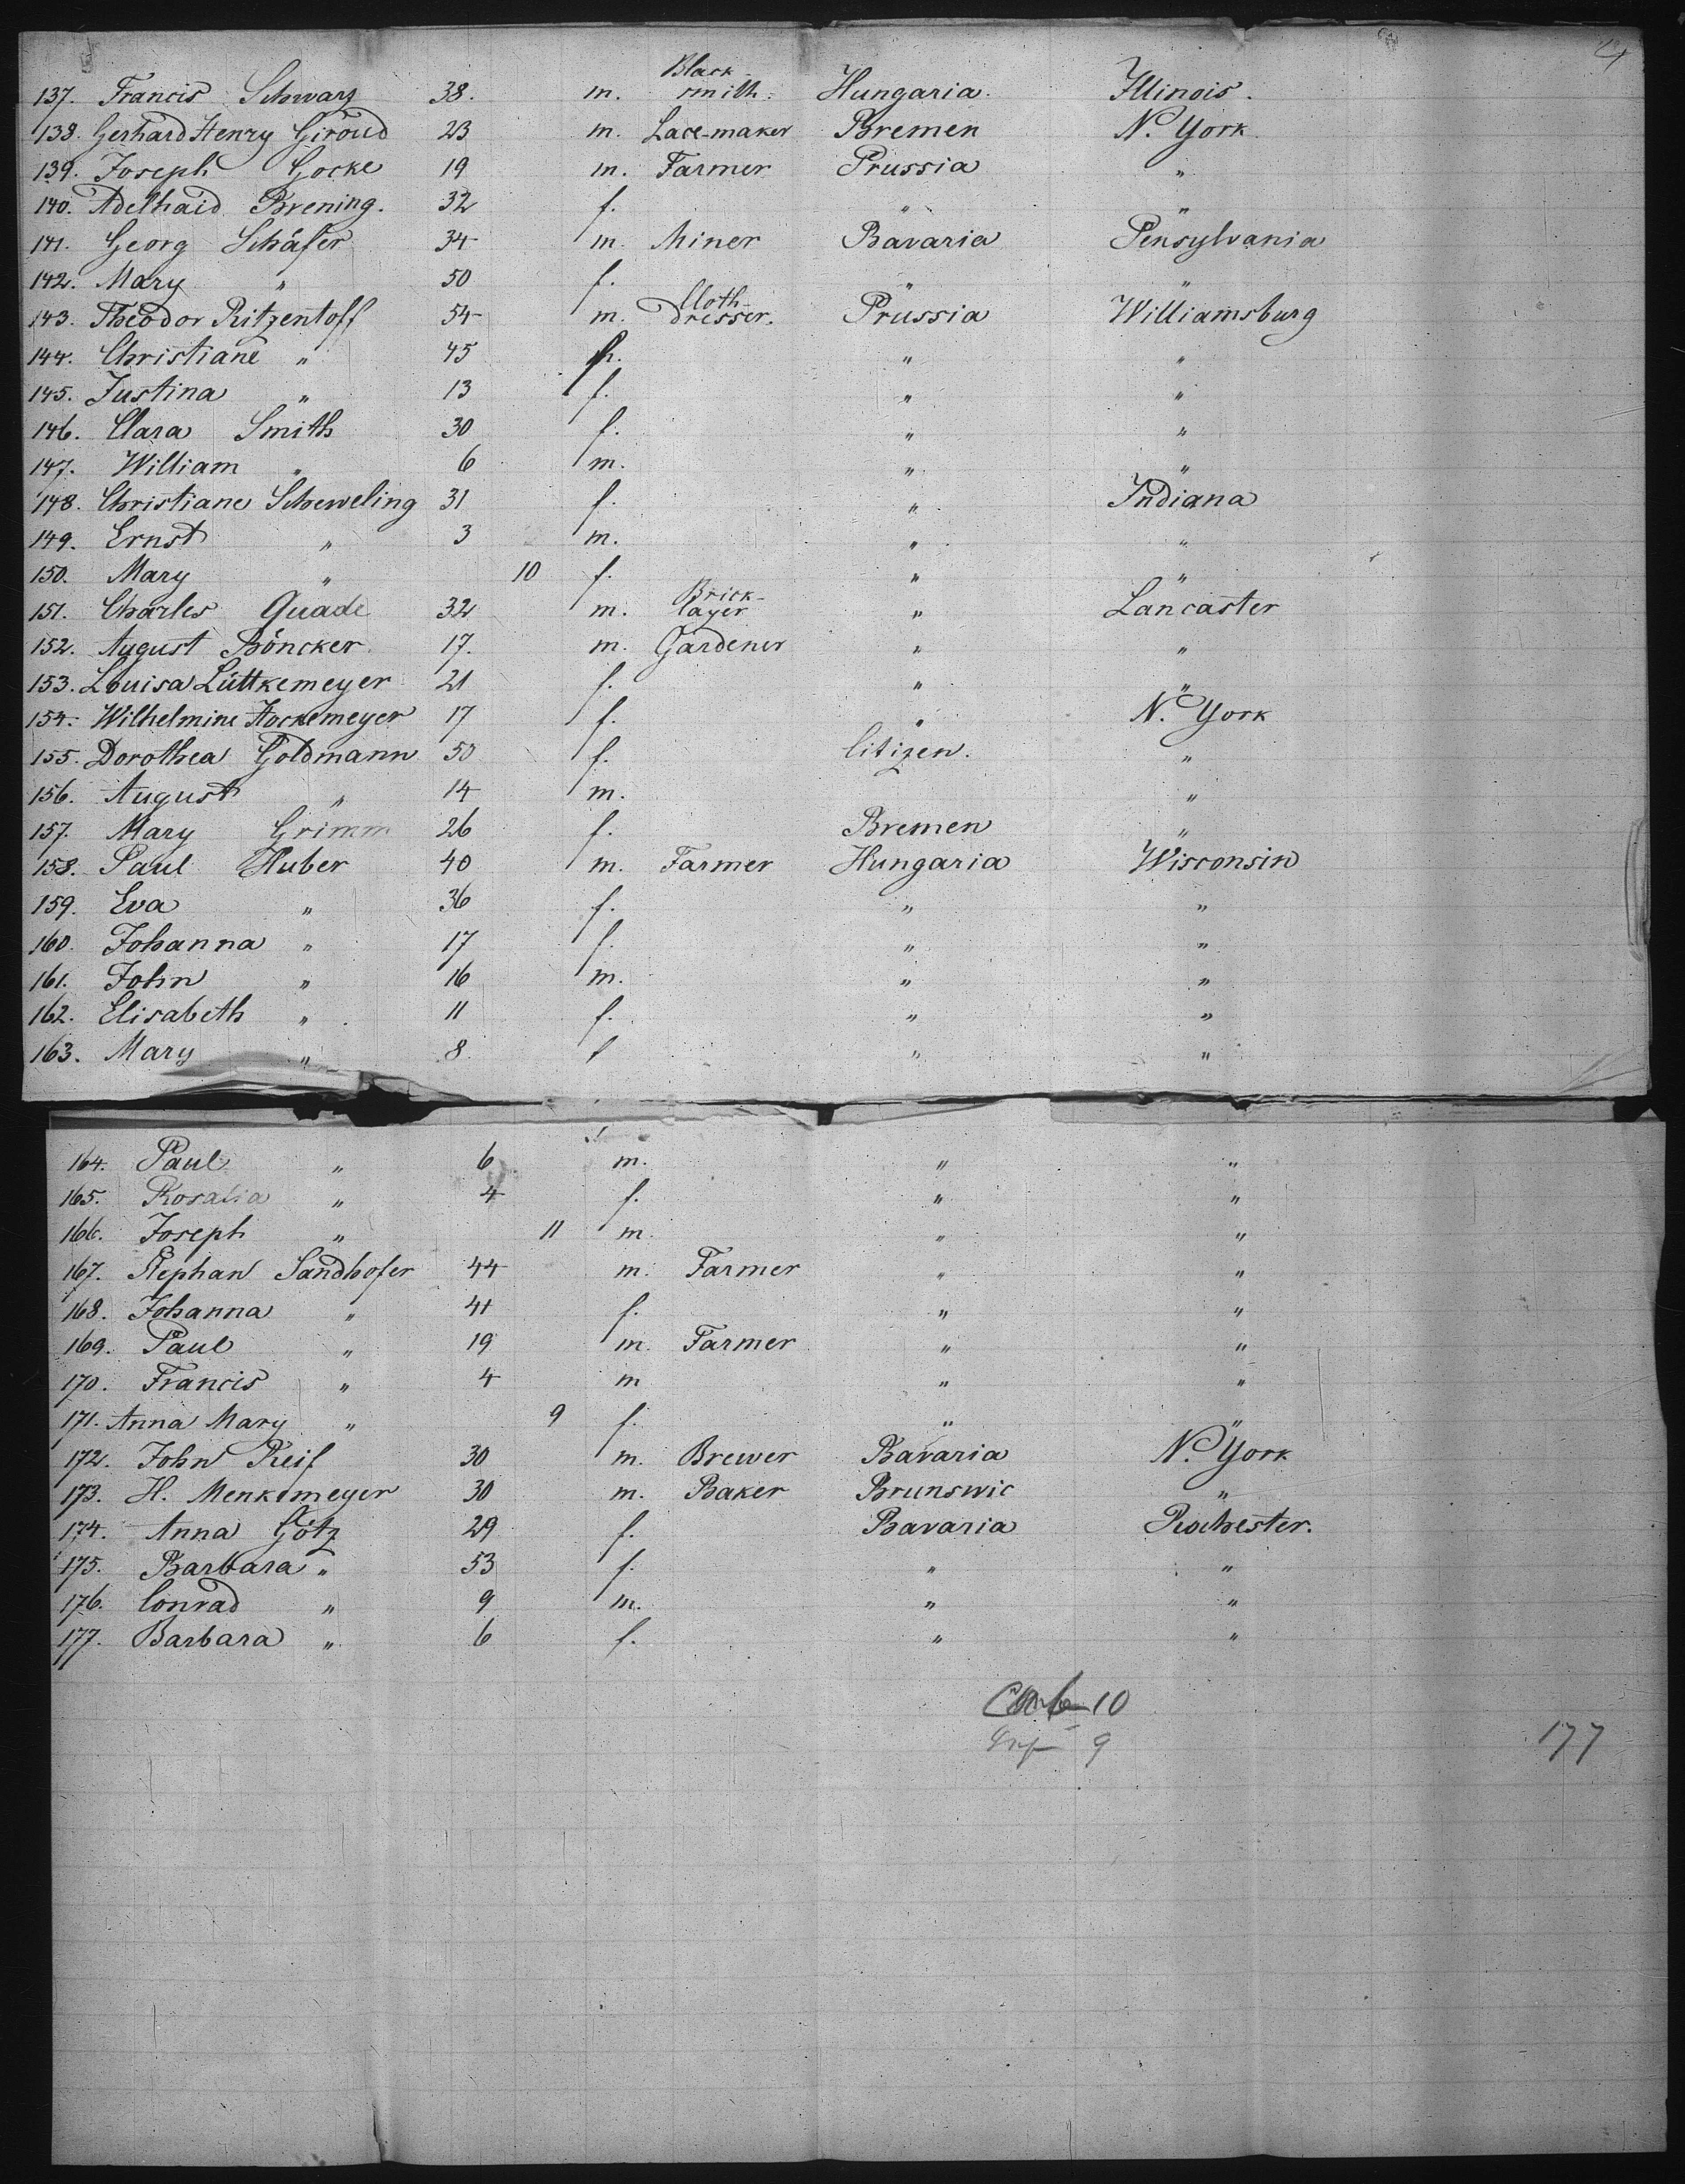 137. Francis Schwarz 38. m. Black-smith. Hungaria. Illinois.
138. Gerhard Henry Giroud 23 m. Lace-maker Bremen N. York
139. Joseph Gocke 19 m. Farmer Prussia "
140. Adelhaid Brening. 32 f. " "
141. Georg Schäfer 34 m. Miner Bavaria Pensylvania
142. Mary " 50 f. " "
143. Theodor Ritzentoff 54 m. Cloth-dresser. Prussia Williamsburg
144. Christiane " 45 f. " "
145. Justina " 13 f. " "
146. Clara Smith 30 f. " "
147. William " 6 m. " "
148. Christiane Scheweling 31 f. " Indiana
149. Ernst " 3 m. " "
150. Mary " 10 f. " "
151. Charles Quade 32 m. Brick-layer " Lancaster
152. August Böncker 17. m. Gardener " "
153. Louisa Lüttkemeyer 21 f. " "
154. Wilhelmine Hockemeyer 17 f. " N. York
155. Dorothea Goldmann 50 f. Citizen. "
156. August " 14 m. "
157. Mary Grimm 26 f. Bremen "
158. Paul Huber 40 m. Farmer Hungaria Wisconsin
159. Eva " 36 f. " "
160. Johanna " 17 f. " "
161. John " 16 m. " "
162. Elisabeth " 11 f. " "
163. Mary " 8 f " "
164. Paul " 6 m. " "
165. Rosalia " 4 f. " "
166. Joseph " 11 m. " "
167. Stephan Sandhofer 44 m. Farmer " "
168. Johanna " 41 f. " "
169. Paul " 19 m. Farmer " "
170. Francis " 4 m " "
171. Anna Mary " 9 f. " "
172. John Reif 30 m. Brewer Bavaria N. York
173. H. Menkemeyer 30 m. Baker Brunswic "
174. Anna Götz 29 f. Bavaria Rochester.
175. Barbara " 53 f. " "
176. Conrad " 9 m. " "
177. Barbara " 6 f. " "
10
9 177